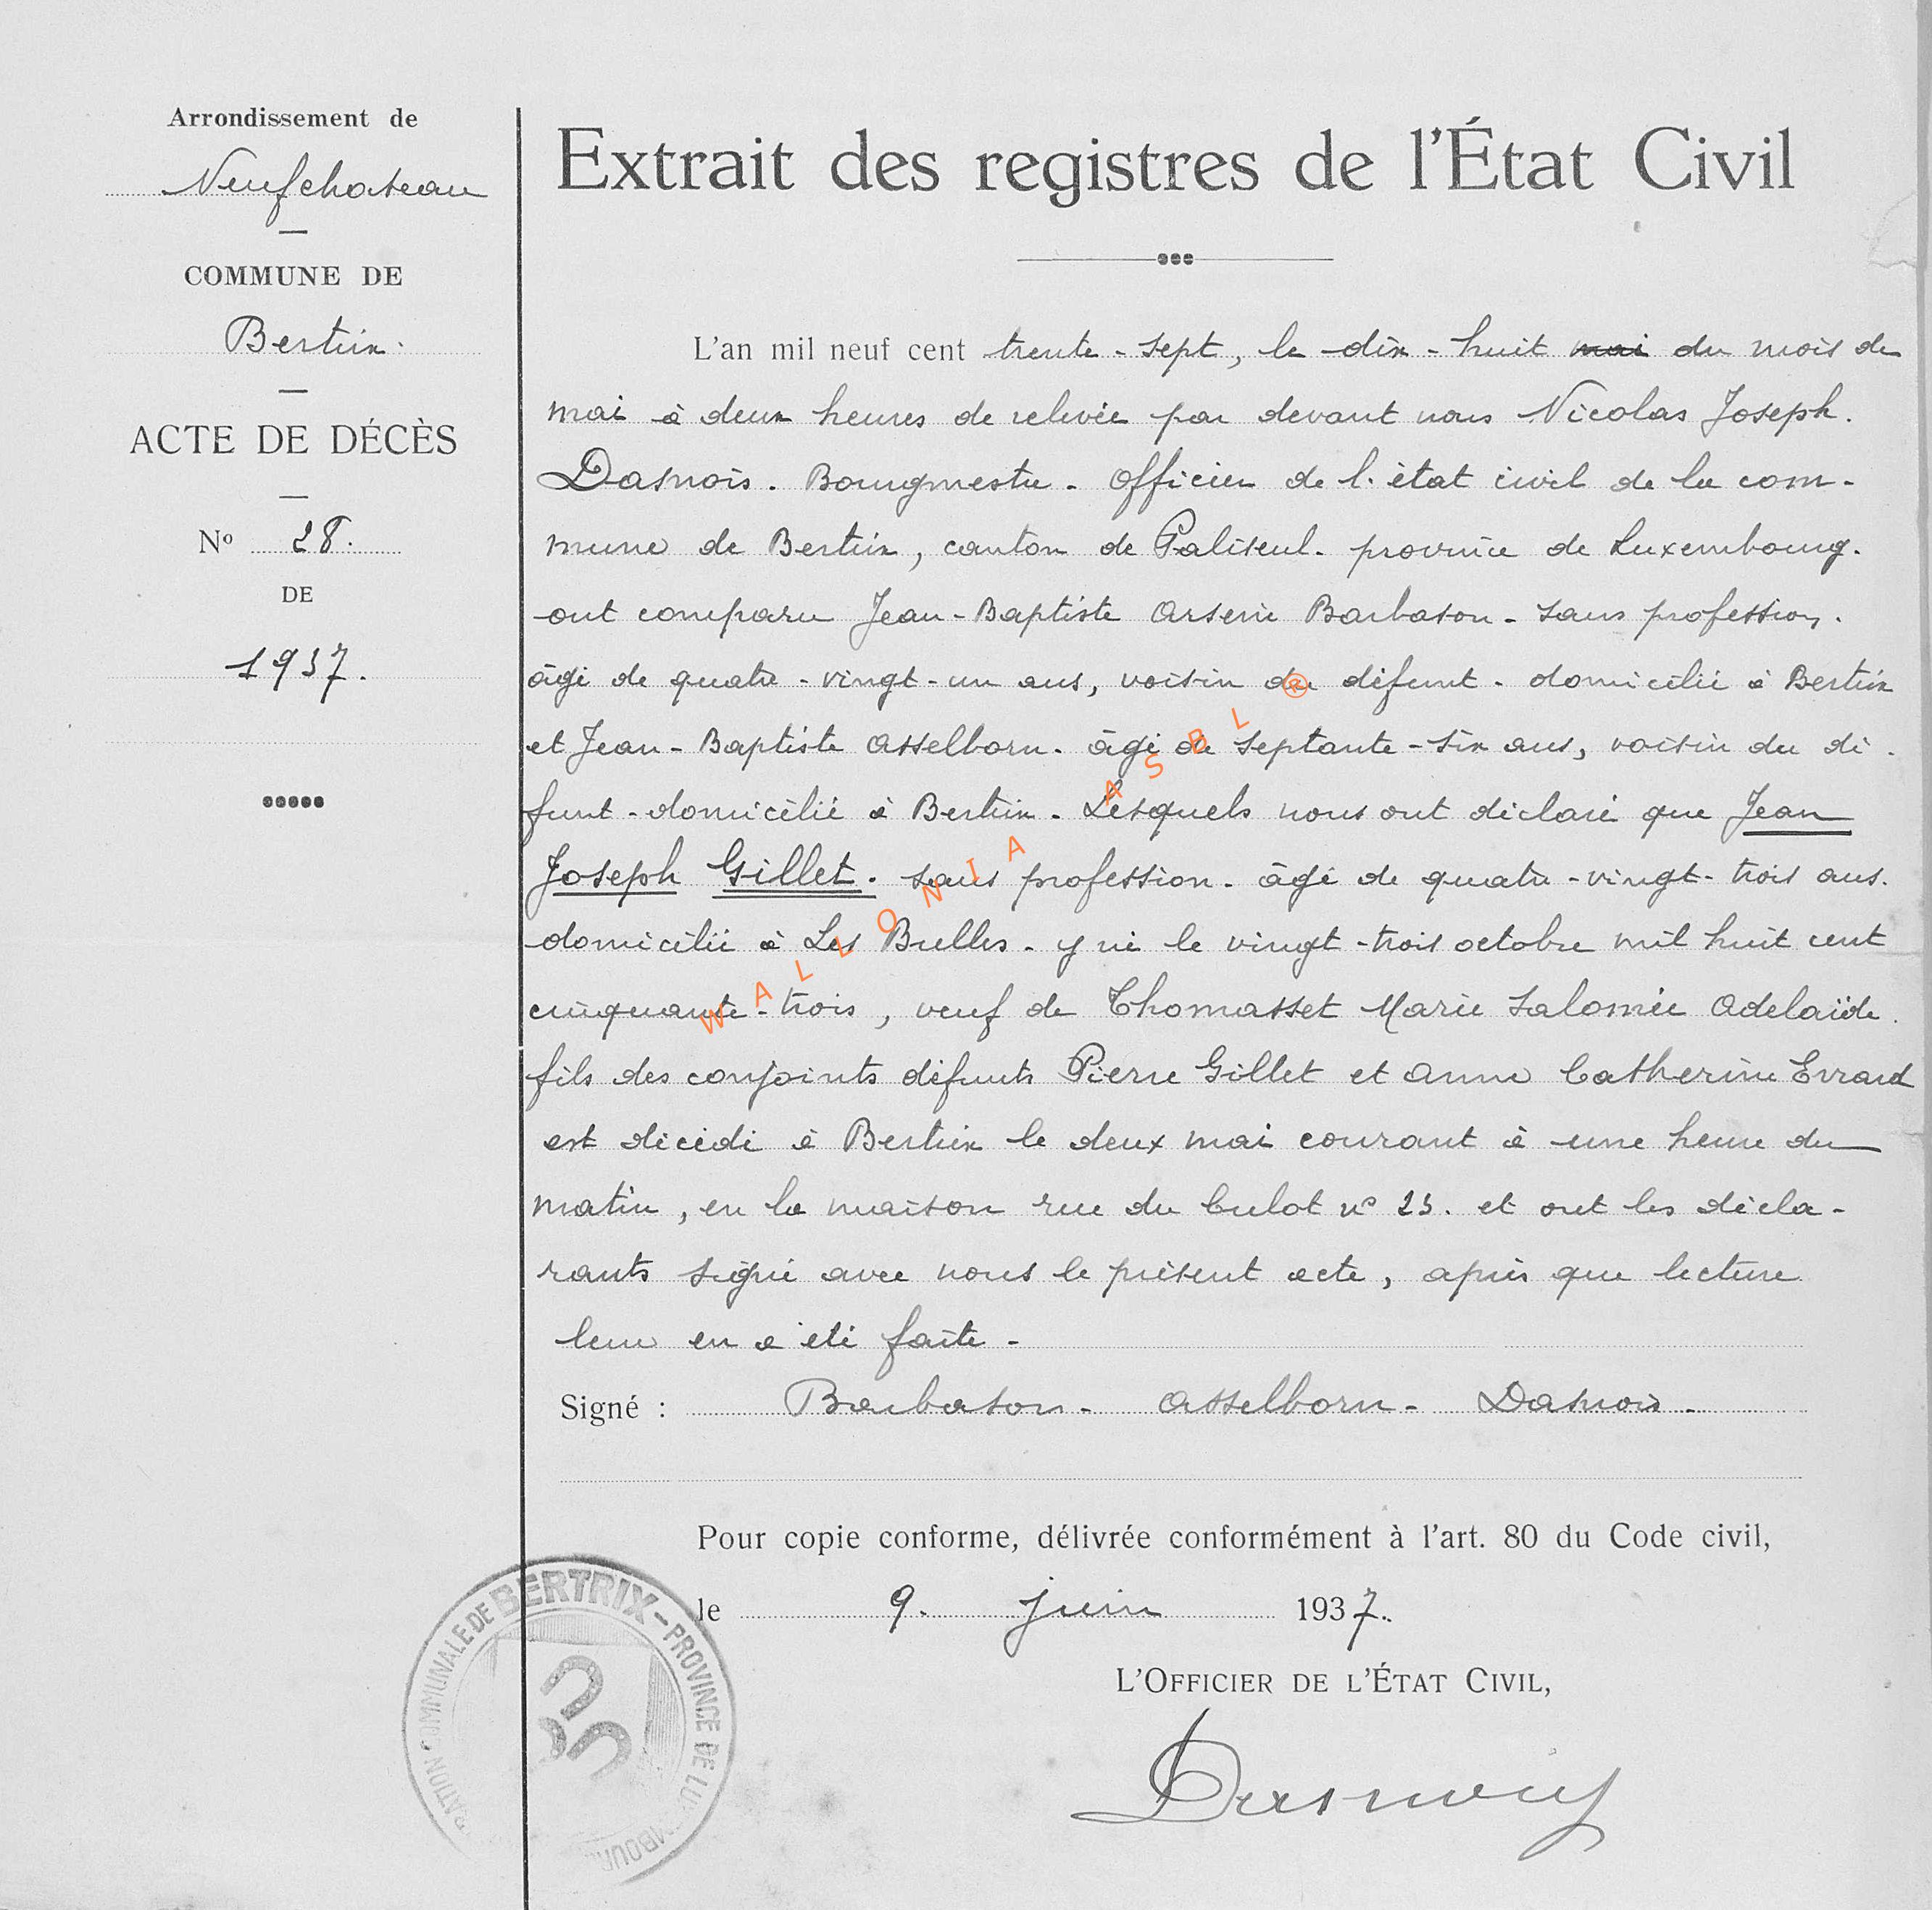 Arrondissement de
Neufchateau
COMMUNE DE
Bertrix.
ACTE DE DÉCÈS
No 28.
DE
1937.
Extrait des registres de l'État Civil
L'an mil neuf cent trente - sept, le dix - huit mai du mois de
mai à deux heures de relevée par devant nous Nicolas Joseph.
Dasnois. Bourgmestre - officier de l'état civil de la com-
mune de Bertrix, canton de Paliseul - province de Luxembourg.
ont comparu Jean-Baptiste Arsene Barbason - sans profession.
âgé de quatre-vingt-un ans, voisin du défunt - domicilié à Bertrix
et Jean-Baptiste Asselborn - âgé de septante-six ans, voisin du dé
funt - domicilié à Bertrix - Lesquels nous ont déclaré que Jean
Joseph Gillet. sans profession - âgé de quatre-vingt-trois ans.
domicilié à Les Bulles - y né le vingt-trois octobre mil huit cent
cinquante-trois, veuf de Thomasset Marie Salomée Adelaïde.
fils des conjoints défunts Pierre Gillet et Anne Catherine Evrard
est décédé à Bertrix le deux mai courant à une heure du
matin, en la maison rue du Culot n° 23. et ont les décla-
rants signé avec nous le présent acte, après que lecture
leur en a été faite -
Signé : Barbason - Asselborn - Dasnois -
Pour copie conforme, délivrée conformément à l'art. 80 du Code civil,
le 9. juin 1937.
L'OFFICIER DE L'ÉTAT CIVIL,
Dasnoy
COMMUNALE DE BERTRIX - PROVINCE DE
WALLONIA ASBL ®